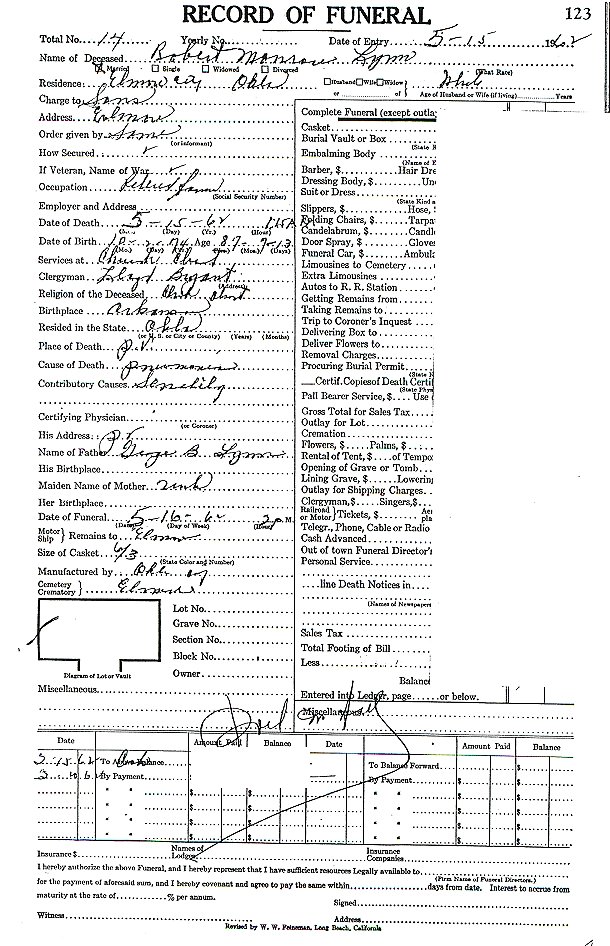 RECORD OF FUNERAL 123
Total No. 14 Yearly No. Date of Entry 5-15 1962
Name of Deceased Robert Monroe Lynn
Married Single Widowed Divorced (What Race)
Residence: Elmore City Okla Husband Wife Widow
or of Age of Husband or Wife (if living) Years
Charge to Sons
Address Elmore
Order given by Same
(or informant)
How Secured
If Veteran, Name of War
Occupation Retired Farmer
(Social Security Number)
Employer and Address
Date of Death 5-15-62
(Mo.) (Day) (Yr.) (Hour)
Date of Birth Age 87-7-13
(Mo.) (Day) (Yr.) (Yrs.) (Mos.) (Days)
Services at Church Christ
(Address)
Clergyman Lloyd Bryant
Religion of the Deceased Church Christ
Birthplace Arkansas
Resided in the State Okla
(or U. S. or City or County) (Years) (Months)
Place of Death P.V.
Cause of Death pneumonia
Contributory Causes Senility
Certifying Physician
(or Coroner)
His Address P.V.
Name of Father George B. Lynn
His Birthplace
Maiden Name of Mother unk
Her Birthplace
Date of Funeral 5-16-62 2 P.M.
(Date) (Day of Week) (Hour)
Motor Ship } Remains to Elmore
Size of Casket 6/3
(State Color and Number)
Manufactured by Okla City
Cemetery Crematory } Elmore
Lot No.
Grave No.
Section No.
Block No.
Owner
Diagram of Lot or Vault
Miscellaneous
Complete Funeral (except outla
Casket
Burial Vault or Box
(State K
Embalming Body
(Name of E
Barber, $ Hair Dre
Dressing Body, $ Un
Suit or Dress
(State Kind a
Slippers, $ Hose,
Folding Chairs, $ Tarpa
Candelabrum, $ Candl
Door Spray, $ Glove
Funeral Car, $ Ambul
Limousines to Cemetery
Extra Limousines
Autos to R. R. Station
Getting Remains from
Taking Remains to
Trip to Coroner's Inquest
Delivering Box to
Deliver Flowers to
Removal Charges
Procuring Burial Permit
(State N
Certif. Copies of Death Certif
(State Phys
Pall Bearer Service, $ Use
Gross Total for Sales Tax
Outlay for Lot
Cremation
Flowers, $ Palms, $
Rental of Tent, $ of Tempo
Opening of Grave or Tomb
Lining Grave, $ Lowerin
Outlay for Shipping Charges
Clergyman, $ Singers, $
Railroad or Motor } Tickets, $ Aer pla
Telegr., Phone, Cable or Radio
Cash Advanced
Out of town Funeral Director's
Personal Service
line Death Notices in
(Names of Newspapers
Sales Tax
Total Footing of Bill
Less
Balanc
Entered into Ledger, page or below.
Miscellaneous
Paid in full
Date Amount Paid Balance Date Amount Paid Balance
To Balance To Balance Forward
By Payment By Payment
Insurance $ Names of Lodges Insurance Companies
I hereby authorize the above Funeral, and I hereby represent that I have sufficient resources Legally available to
(Firm Name of Funeral Directors.)
for the payment of aforesaid sum, and I hereby covenant and agree to pay the same within days from date. Interest to accrue from
maturity at the rate of % per annum. Signed
Witness Address
Revised by W. W. Feineman, Long Beach, California